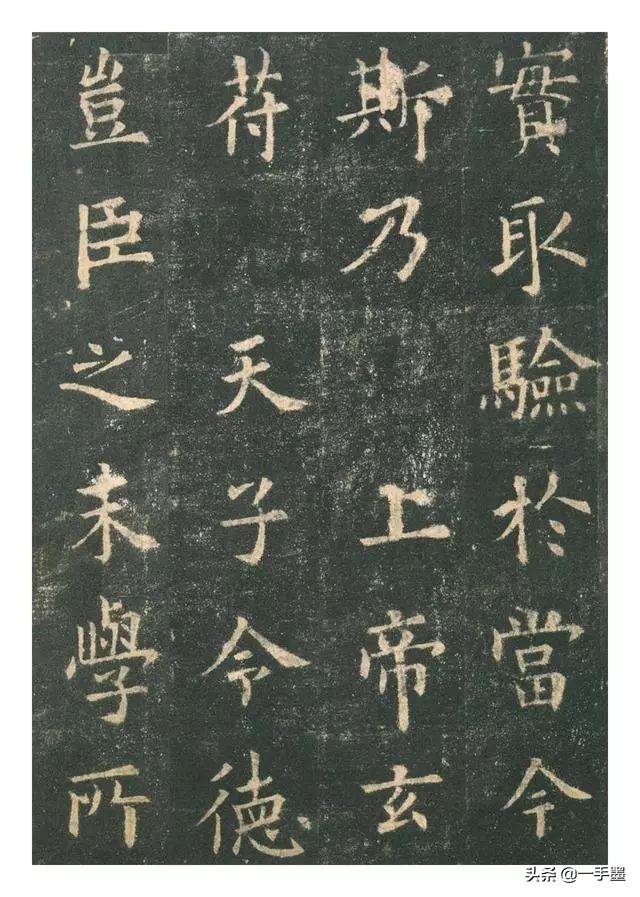 實取驗於當今
斯乃上帝玄
苻天子令德
豈臣之末學所
头条 @一手墨